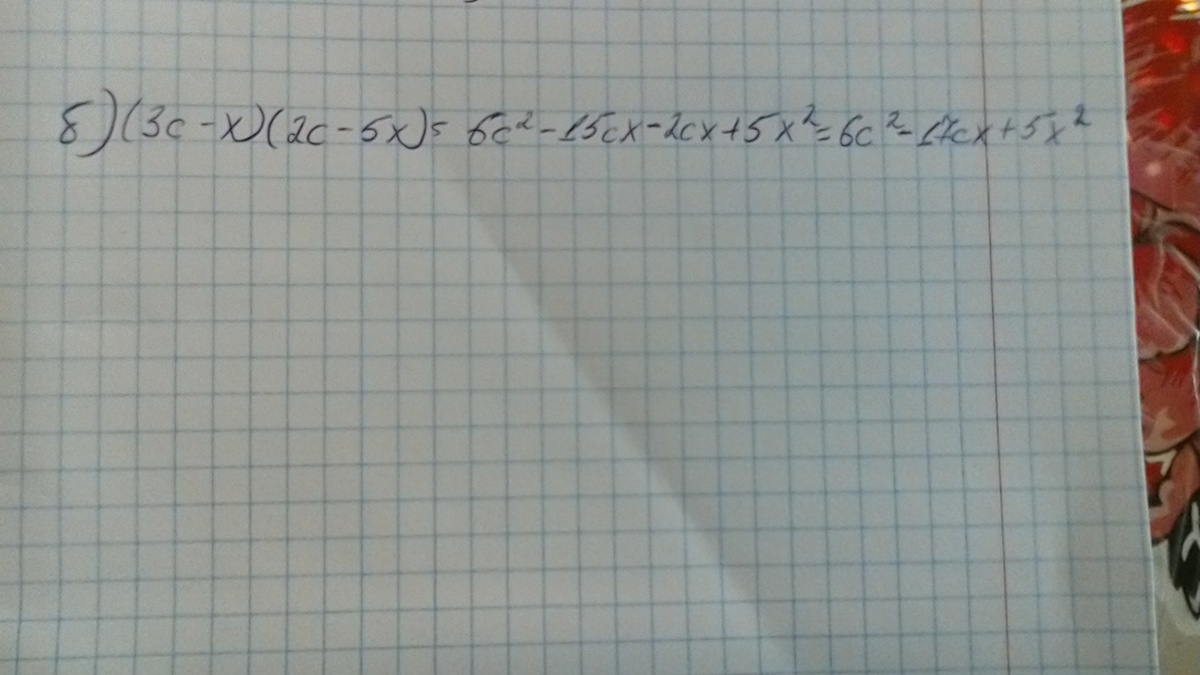 б) (3c - x)(2c - 5x) = 6c² - 15cx - 2cx + 5x² = 6c² - 17cx + 5x²